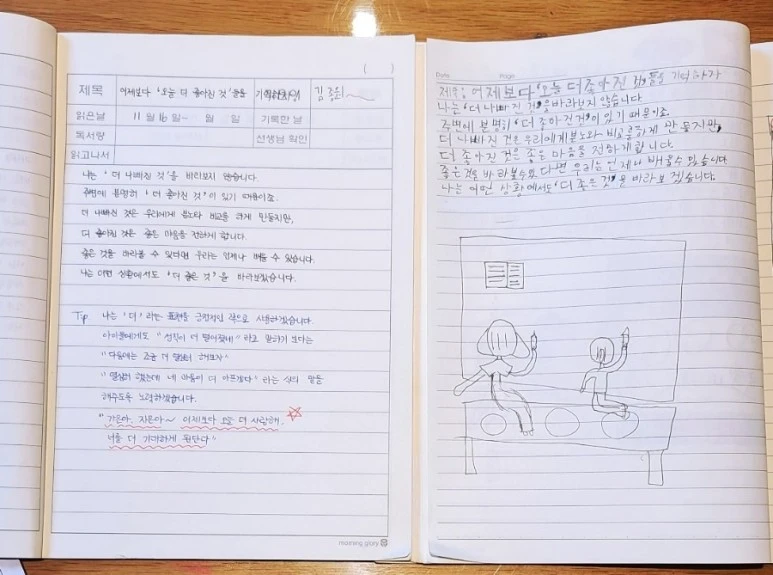 ( )
제목 어제보다 '오늘 더 좋아진 것'들을 기억하자 김종원
읽은날 11월 16일~ 월 일 기록한 날
독서량 선생님 확인
읽고나서
나는 '더 나빠진 것'을 바라보지 않습니다.
주변에 분명히 '더 좋아진 것'이 있기 때문이죠.
더 나빠진 것은 우리에게 분노와 비교를 크게 만들지만,
더 좋아진 것은 좋은 마음을 전하게 합니다.
좋은 것을 바라볼 수 있다면 우리는 언제나 배울 수 있습니다.
나는 어떤 상황에서도 '더 좋은 것'을 바라보겠습니다.
Tip 나는 '더'라는 표현을 긍정적인 쪽으로 사용하겠습니다.
아이들에게도 "성적이 더 떨어졌네" 라고 말하기 보다는
"다음에는 조금 더 열심히 해보자"
"열심히 했는데 네 마음이 더 아프겠다" 라는 식의 말을
해주도록 노력하겠습니다.
"가은아, 지은아~ 어제보다 오늘 더 사랑해.
너를 더 기대하게 된단다"
morning glory
Date Page
제목: 어제보다 '오늘 더 좋아진 것'들을 기억하자
나는 '더 나빠진 것'을 바라보지 않습니다
주변에 분명히 '더 좋아진것'이 있기 때문이죠.
더 나빠진 것은 우리에게 분노와 비교를 크게 만들지만,
더 좋아진 것은 좋은 마음을 전하게 합니다.
좋은 것을 바라볼수 있다면 우리는 언제나 배울수 있습니다
나는 어떤 상황에서도 '더 좋은 것'을 바라보겠습니다.